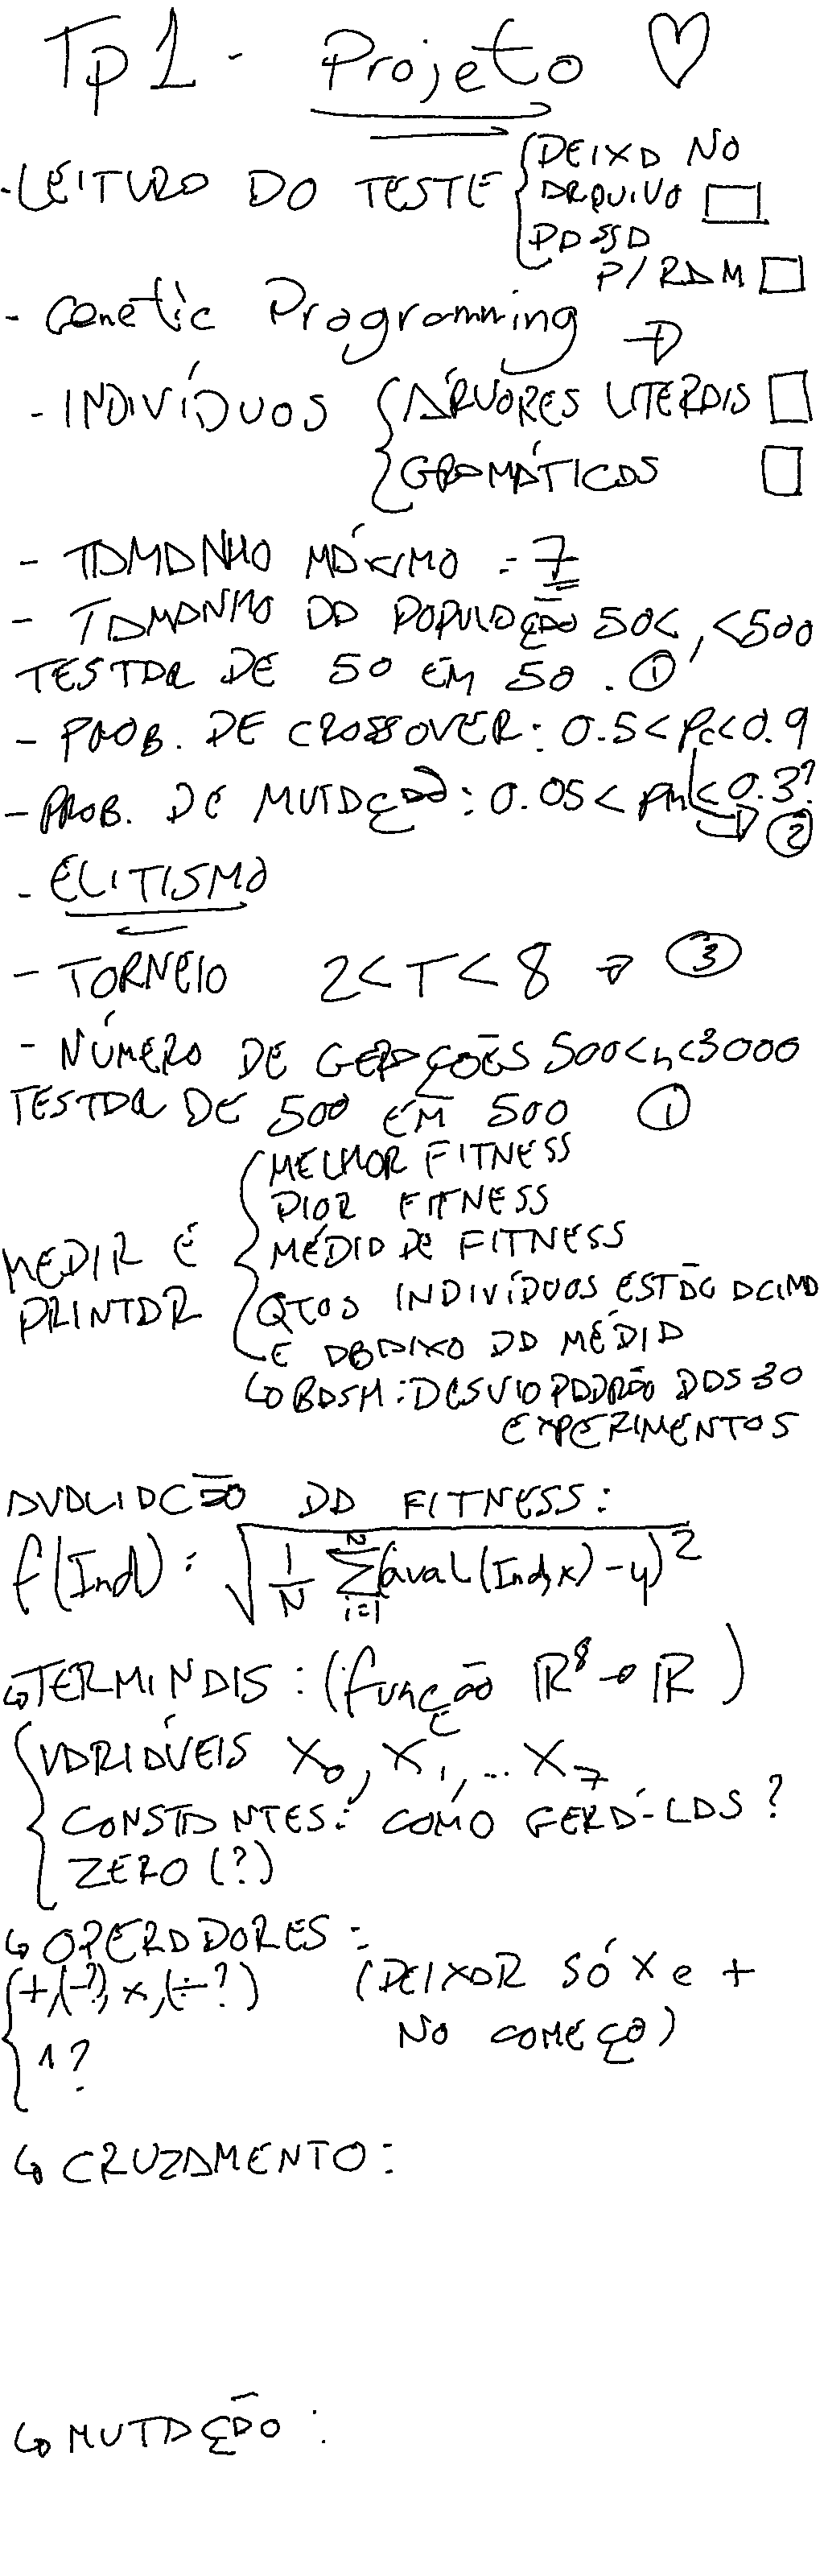 Tp1 - Projeto ♡
- LEITURA DO TESTE { DEIXA NO
ARQUIVO □
PASSA
P/ RAM □
- Genetic Programming →
- INDIVÍDUOS { ÁRVORES LITERAIS □
GRAMÁTICAS □
- TAMANHO MÁXIMO = 7
- TAMANHO DA POPULAÇÃO 50< , <500
TESTAR DE 50 EM 50. ①
- PROB. DE CROSSOVER: 0.5 < pc < 0.9
- PROB. DE MUTAÇÃO: 0.05 < pm < 0.3? → ②
- ELITISMO
- TORNEIO 2 < T < 8 → ③
- NÚMERO DE GERAÇÕES 500<n<3000
TESTAR DE 500 EM 500 ①
MEDIR E PRINTAR { MELHOR FITNESS
PIOR FITNESS
MÉDIA DE FITNESS
QTOS INDIVÍDUOS ESTÃO ACIMA
E ABAIXO DA MÉDIA
↳ OBASM: DESVIO PADRÃO DOS 30
EXPERIMENTOS
AVALIAÇÃO DA FITNESS:
f(Ind) = √(1/N ∑_{i=1}^{N} (aval(Ind,x) - y)²)
↳ TERMINAIS: (função ℝ⁸ → ℝ)
{ VARIÁVEIS X₀, X₁, ... X₇
CONSTANTES: COMO GERÁ-LAS?
ZERO (?)
↳ OPERADORES:
{ +, (-?), x, (÷?) (DEIXAR SÓ X e +
NO COMEÇO)
^?
↳ CRUZAMENTO:
↳ MUTAÇÃO: